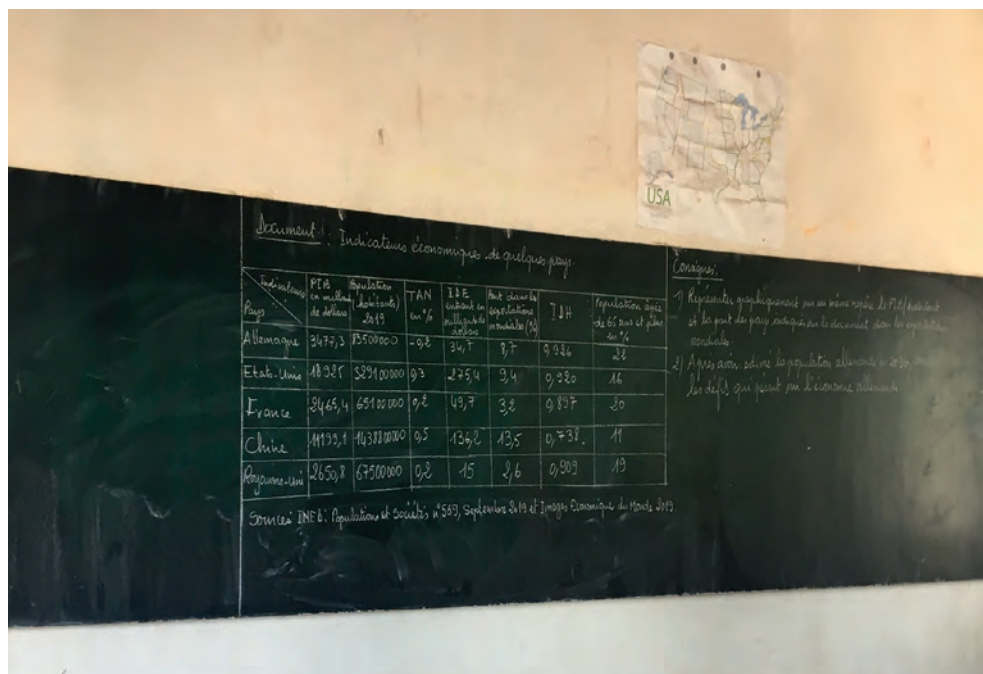 USA
Document 1 : Indicateurs économiques de quelques pays.
Indicateurs
Pays
PIB en milliards de dollars
Population (habitants) 2019
TAN en %
IDE entrant en milliards de dollars
Part dans les exportations mondiales (%)
IDH
Population agée de 65 ans et plus en %
Allemagne 3477,3 83500000 -0,2 34,7 8,7 0,926 22
Etats-Unis 18925 329100000 0,3 275,4 9,4 0,920 16
France 2465,4 65100000 0,2 49,7 3,2 0,897 20
Chine 11199,1 1438800000 0,5 136,2 13,5 0,738. 11
Royaume-Uni 2650,8 67500000 0,2 15 2,6 0,909 19
Sources INED: Populations et Sociétés n°569, Septembre 2019 et Images Economique du Monde 2019.
Consignes:
1) Représentez graphiquement sur un même repère le PIB/habitant
et la part des pays indiqués sur le document dans les exportations
mondiales
2) Après avoir estimé la population allemande en
les défis qui pèsent sur l'économie allemande